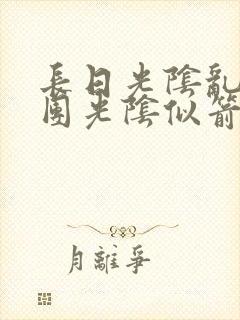 長日光陰亂
團光陰似箭
月離爭